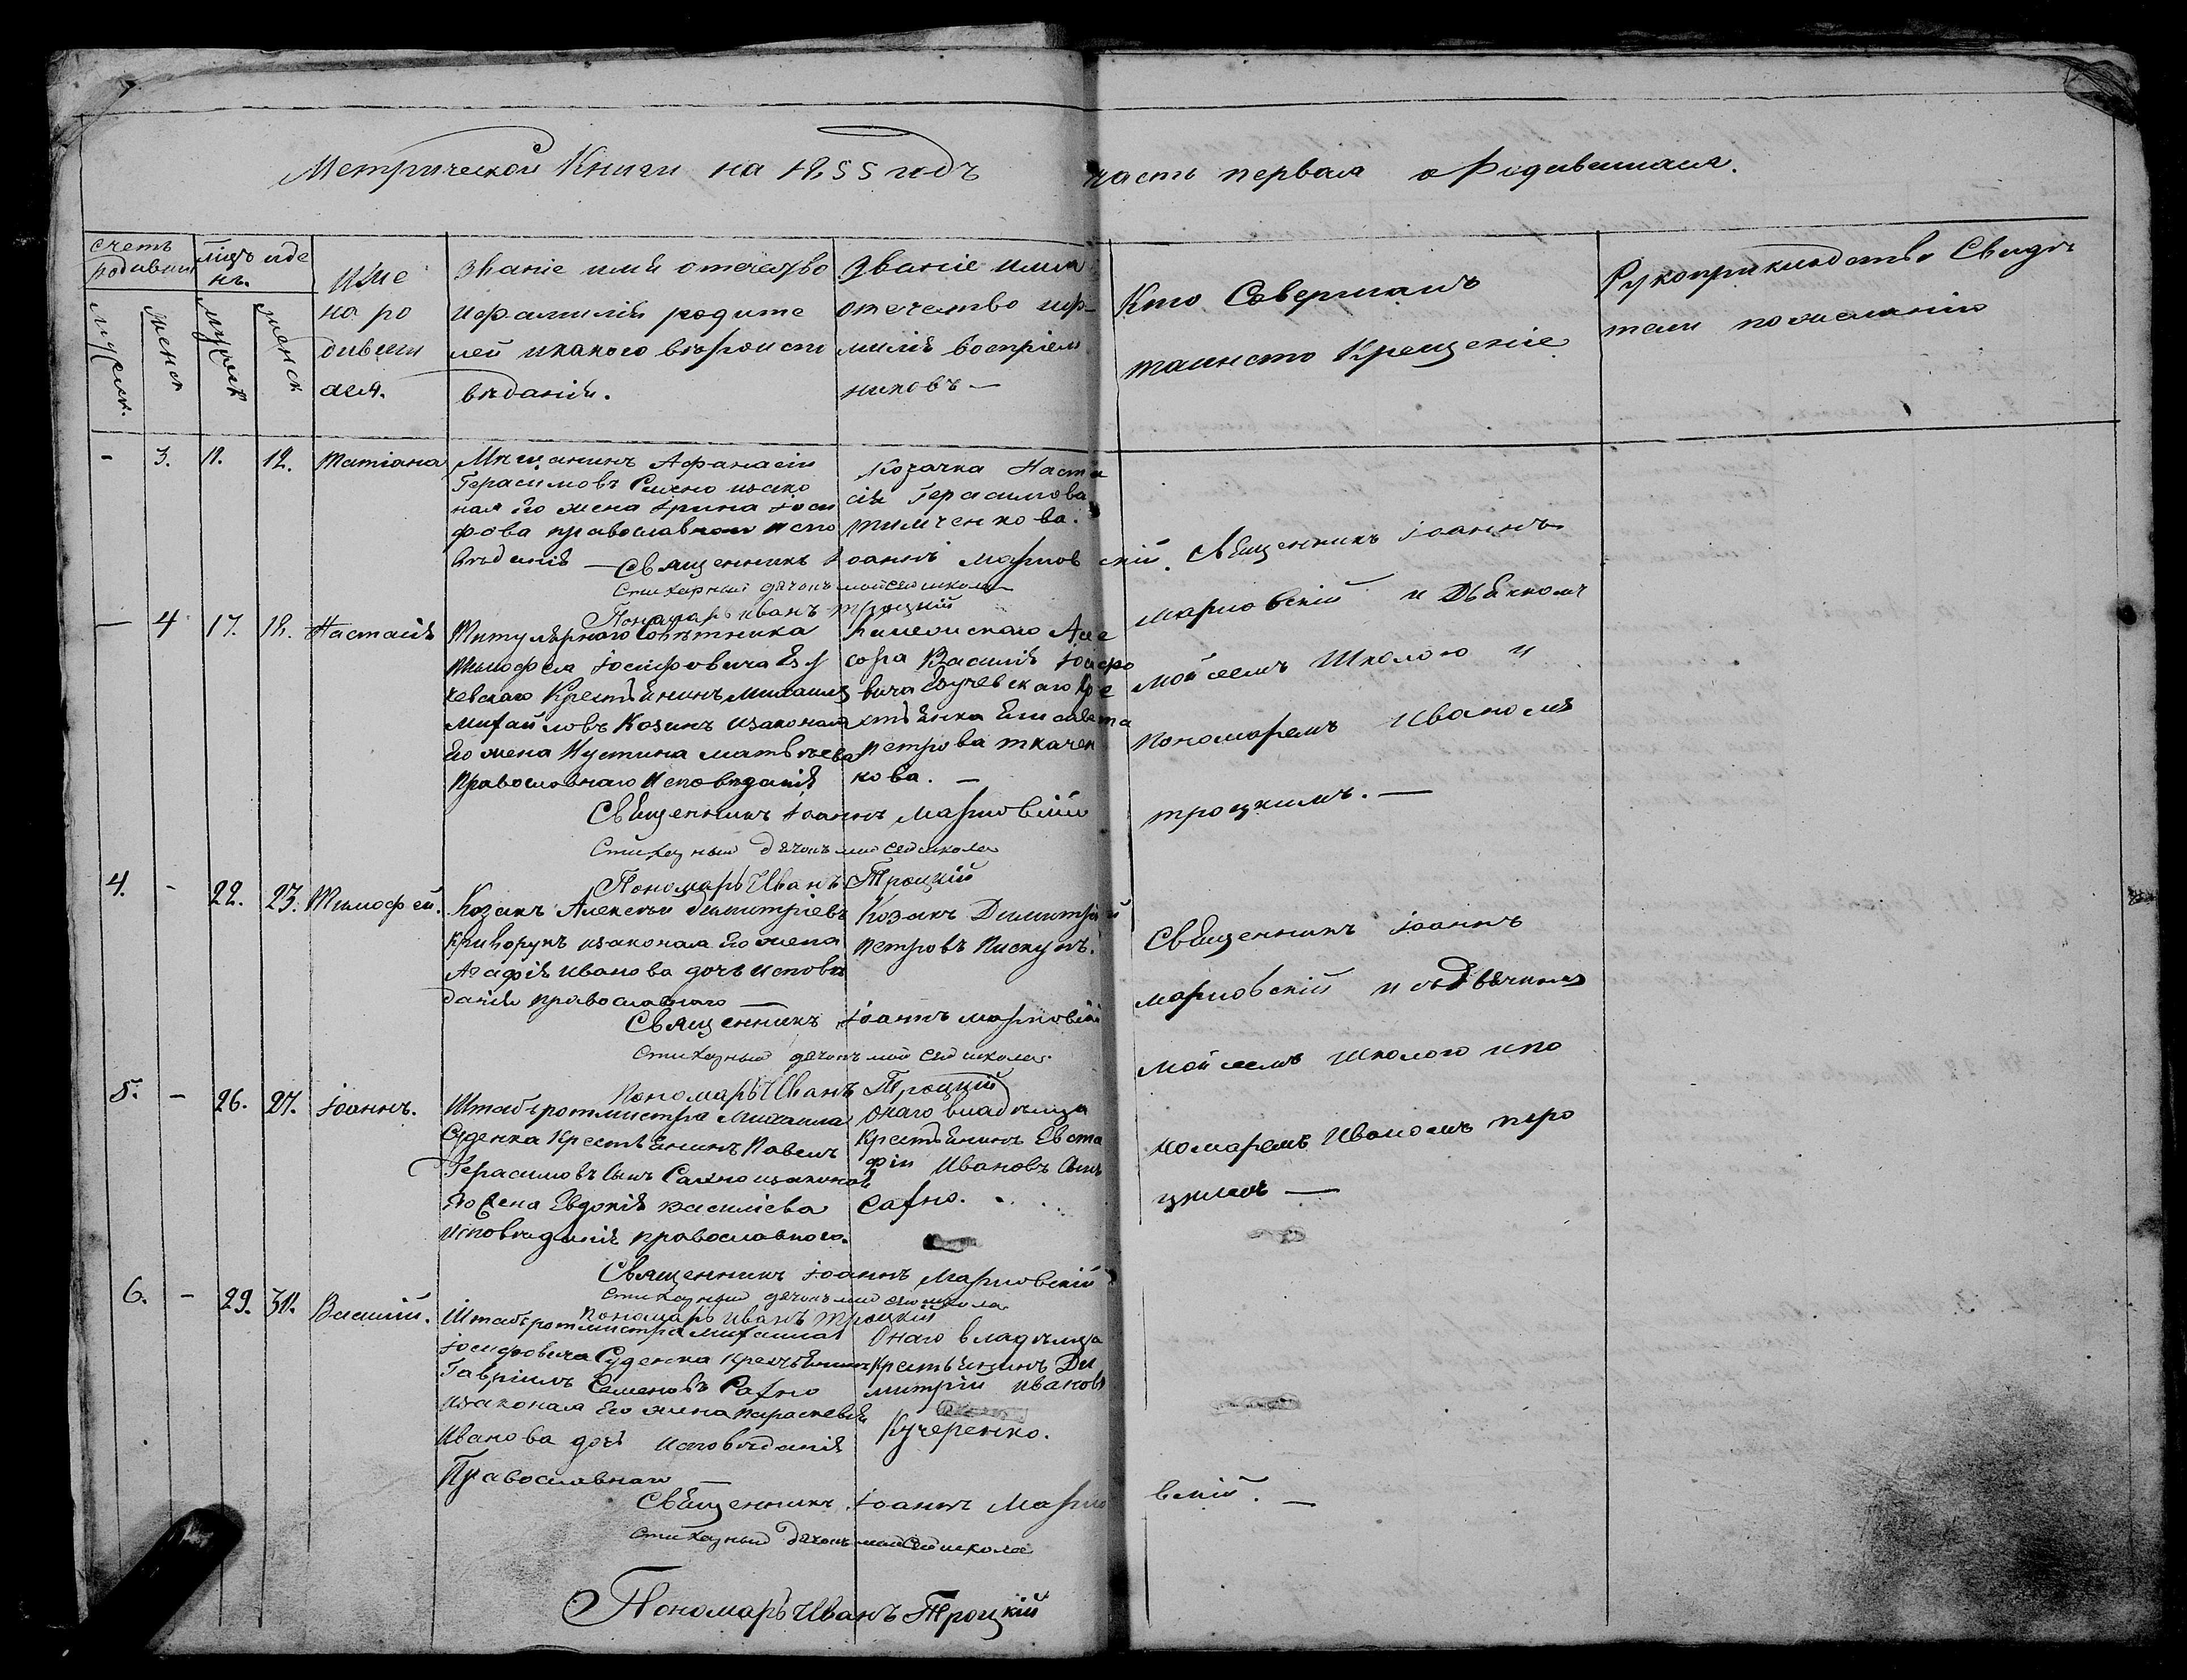 Метрической Книги на 1855 годъ часть первая о Родившихся.
счетъ родивши
мцъ иде нъ.
муж.
женск
мужск
женск
име
на ро
дивши
хся.
Званіе имя отечество
ифамилія родите
лей икакого вѣроиспо
вѣданія.
Званіе имя
отечество иф-
милія воспріем
никовъ —
Кто Совершалъ
таинсто Крещеніе
Рукоприкладство Свидѣ
тели пожеланію
- 3. 11. 12. Татіана
Мѣщанинъ Афанасій
Герасимовъ изако
ная Его жена Ірина Іоси
фова православнаго испо
вѣданія —
Козачка Наста
сія Герасимова
тимченкова.
Священникъ Іоаннъ Марковскій.
Стихарный дячокъ мойсей школа
Пономарь Иванъ Троцкій
Священникъ Іоаннъ
Марковскій и Дьячкомъ
Мойсеемъ Школою и
Пономаремъ Иваномъ
троцкимъ. —
— 4 17. 18. Настасія
Титулярного Совѣтника
Тимофея Іосифовича
Крестьянинъ Михаилъ
Михайловъ Козинъ изаконая
Его жена Иустина матвѣева
Православнаго Исповѣданія
Асе
сора Василія Іосифо
вича
Елисавета
Петрова ткачен
кова. —
Священникъ Іоаннъ Марковскій
Стихарный дячокъ мойсей школа
Пономарь Иванъ Троцкій
4. - 22. 23. Тимофей.
Козакъ Алексѣй Димитріевъ
Криворукъ изаконая Его жена
Агафія иванова дочь исповѣ
данія православного —
Козакъ Димитрій
Петровъ Пискунъ.
Священникъ Іоаннъ Марковскій
Стихарный дячокъ мойсей школа
Пономарь Иванъ Троцкій
Священникъ Іоаннъ
марковскій и съ Дьячкомъ
Мойсеемъ Школою ипо
номаремъ Иваномъ тро
цкимъ —
5. - 26. 27. Іоаннъ.
Штабъротмистра Михаила
Суденка Крестьянинъ Павелъ
Герасимовъ сынъ Сахно изаконая
Его жена Евдокія василіева
исповѣданія православного.
Онаго владѣльца
Крестьянинъ Евста
фій Ивановъ сынъ
Сахно.
Священникъ Іоаннъ Марковскій
Стихарный дячокъ мойсей школа
Пономарь Иванъ Троцкій
6. - 29. 30. Василій.
Штабъротмистра Михаила
Іосифовича Суденка Крестьянинъ
Гавріилъ Семеновъ Сахно
изаконая Его жена параскевія
Иванова дочь исповѣданія
Православнаго —
Онаго владѣльца
Крестьянинъ Ди
митрій ивановъ
Кучеренко.
Священникъ Іоаннъ Марковскій. —
Стихарный дячокъ мойсей школа
Пономарь Иванъ Троцкій